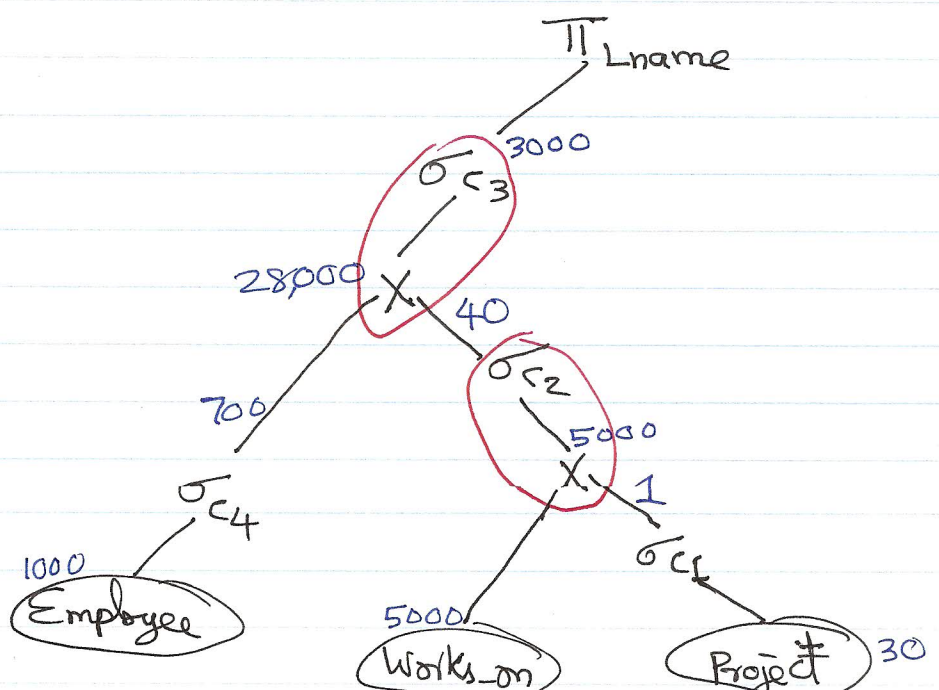 π Lname
3000
σ C3
28,000 X
40
σ C2
700
5000
X
1
σ C4
σ C1
1000
Employee
5000
Works_on
Project
30